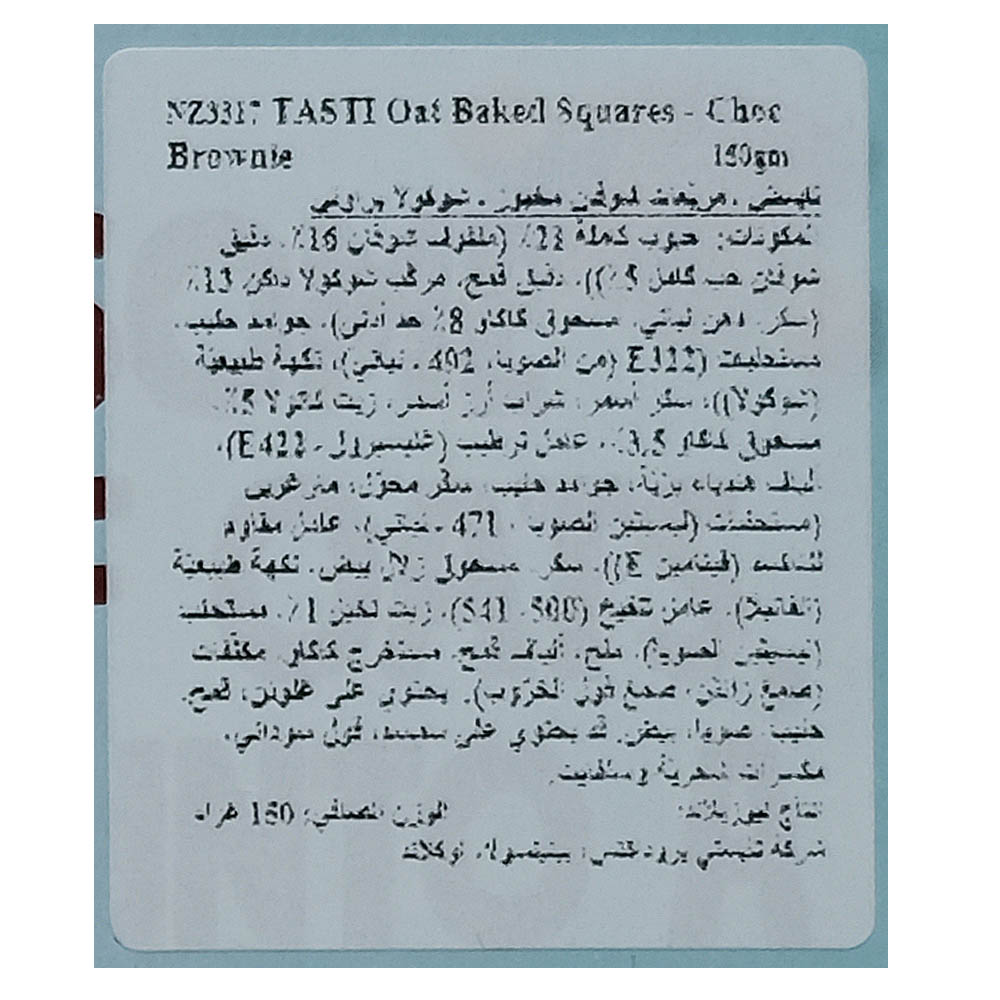 NZ3317 TASTI Oat Baked Squares - Choc
Brownie 150gm
تايستي ، مربعات شوفان مخبوز ، شوكولا براوني
المكونات: حبوب كاملة 21٪ (ملفوف شوفان 16٪، دقيق
شوفان حب كامل 5٪))، دقيق قمح، مركب شوكولا داكن 13٪
(سكر، دهن نباتي، مسحوق كاكاو 8٪ حد أدنى)، جوامد حليب،
مستحلبات (E322 (من الصويا، 492 ، نباتي)، نكهة طبيعية
(شوكولا))، سكر أسمر، شراب أرز أسمر، زيت كانولا 5٪،
مسحوق كاكاو 3,5٪، عامل ترطيب (غليسيرول - E422)،
ألياف هندباء برية، جوامد حليب، سكر محول، مارغرين
(مستحلبات (ليسيتين الصويا ، 471 ، نباتي)، عامل مقاوم
للتأكسد (فيتامين E))، سكر، مسحوق زلال بيض، نكهة طبيعية
(الفانيلا)، عامل تنفيخ (500، 541)، زيت نخيل 1٪، مستحلب
(ليسيتين الصويا)، ملح، ألياف قمح، مستخرج كاكاو، مكثفات
(صمغ زانثان، صمغ فول الخروب). يحتوي على غلوتن، قمح،
حليب، صويا، بيض. قد يحتوي على سمسم، فول سوداني،
مكسرات شجرية وسلفايت.
انتاج نيوزيلاند: الوزن الصافي: 150 غرام
شركة تايستي برودكتس، أوكلاند